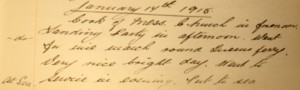 January 14th 1918.
Cook of Mess. Church in forenoon
-do- Landing Party in afternoon. Went
for nice march round Queensferry.
Very nice bright day. Went to
At Sea. Service in evening. Put to sea